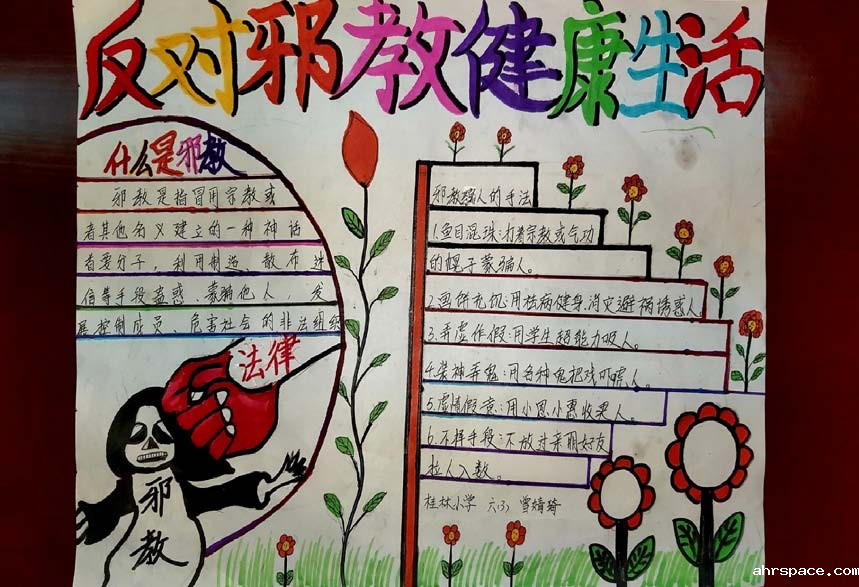 反对邪教健康生活
什么是邪教
邪教是指冒用宗教或
者其他名义建立的一种神话
首要分子，利用制造、散布迷
信等手段蛊惑、蒙骗他人，发
展控制成员、危害社会的非法组织
法律
邪教
邪教骗人的手法
1.鱼目混珠:打着宗教或气功
的幌子蒙骗人。
2.画饼充饥:用祛病健身、消灾避祸诱惑人
3.弄虚作假:用学生超能力吸人。
4.装神弄鬼:用各种鬼把戏吓唬人。
5.虚情假意:用小恩小惠收买人。
6.不择手段:不放过亲朋好友
拉人入教。
桂林小学 六(3) 雪婧琦
ahrspace.com